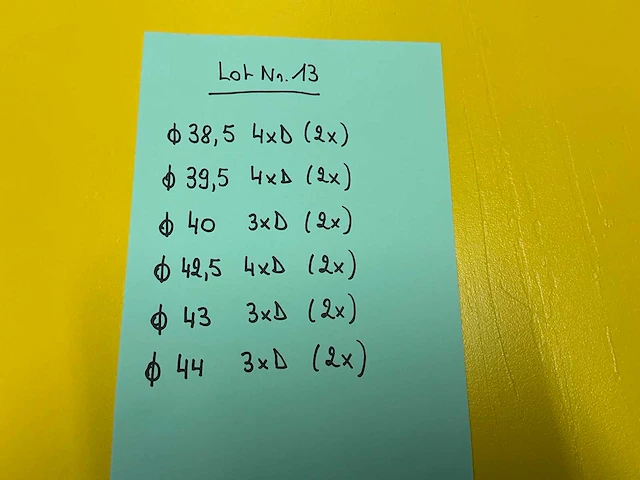 Lot Nr. 13
ϕ 38,5 4xD (2x)
ϕ 39,5 4xD (2x)
ϕ 40 3xD (2x)
ϕ 42,5 4xD (2x)
ϕ 43 3xD (2x)
ϕ 44 3xD (2x)